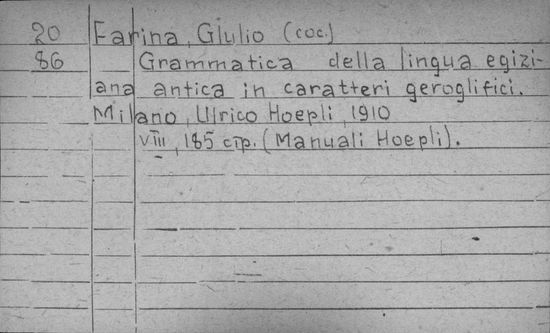 20 Farina, Giulio (сос.)
86 Grammatica della lingua egizi-
ana antica in caratteri geroglifici.
Milano, Ulrico Hoepli, 1910
VIII, 185 стр. (Manuali Hoepli).